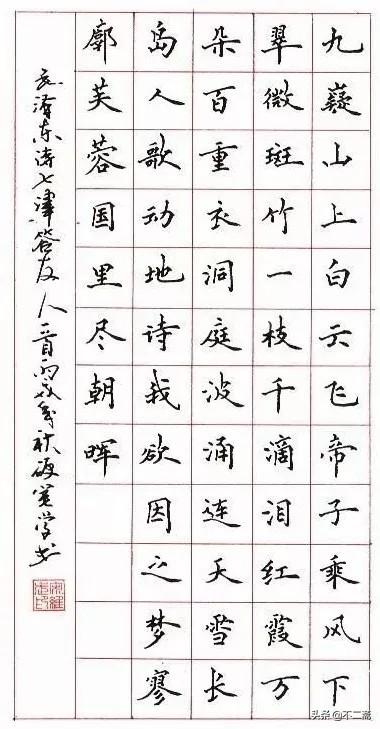 九嶷山上白云飞帝子乘风下
翠微斑竹一枝千滴泪红霞万
朵百重衣洞庭波涌连天雪长
岛人歌动地诗我欲因之梦寥
廓芙蓉国里尽朝晖
毛泽东诗七律答友人一首丙戌年秋学书
头条@不二斋